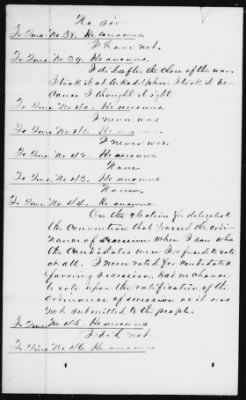 No sir
To Ques. No 38. He answers
I have not.
To Ques. No 39. He answers
I did after the close of the war
I took it at I took it be
cause I thought it right
To Ques No 40. He answers
I never was
To Ques. No 41. He answers
I never was.
To Ques. No 42. He answers
None
To Ques. No 43. He answers
No never
To Ques. No 44. He answers
On the election for delegates to
the Convention that passed the ordi
nance of secession when I saw who
the Candidates were I refused to vote
at all. I never voted for candidates
favoring secession. Had no chance
to vote upon the ratification of the
ordinance of secession as it was
not submitted to the people.
To Ques No 45. He answers
I did not
To Ques No 46 He answers